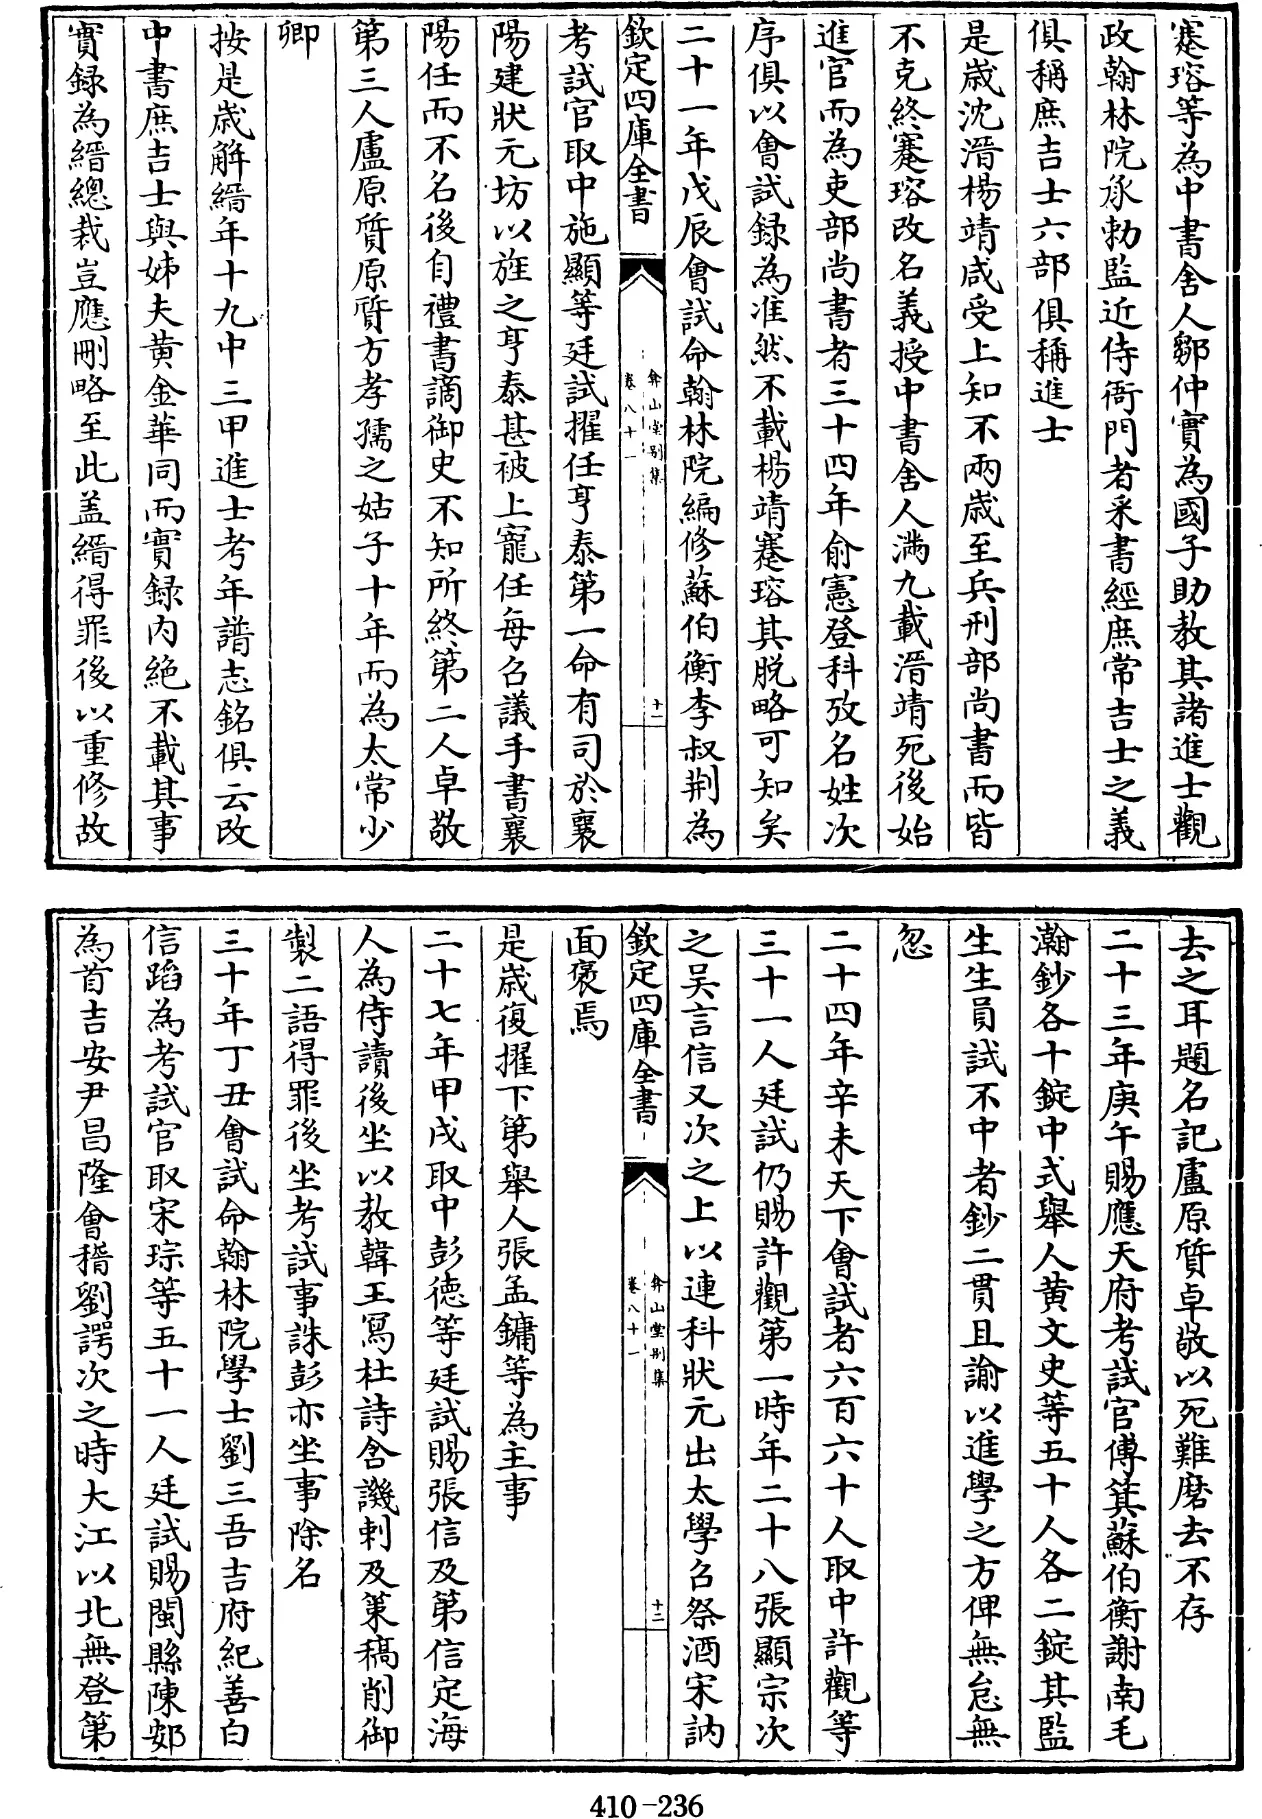 蹇瑢等為中書舍人鄒仲實為國子助教其諸進士觀
政翰林院承勅監近侍衙門者采書經庶常吉士之義
俱稱庶吉士六部俱稱進士
是歲沈溍楊靖咸受上知不兩歲至兵刑部尚書而皆
不克終蹇瑢改名義授中書舍人滿九載溍靖死後始
進官而為吏部尚書者三十四年俞憲登科攷名姓次
序俱以會試録為准然不載楊靖蹇瑢其脱略可知矣
二十一年戊辰會試命翰林院編修蘇伯衡李叔荆為
欽定四庫全書
弇山堂别集
卷八十一
十一
考試官取中施顯等廷試擢任亨泰第一命有司於襄
陽建狀元坊以旌之亨泰甚被上寵任每召議手書襄
陽任而不名後自禮書謫御史不知所終第二人卓敬
第三人盧原質原質方孝孺之姑子十年而為太常少
卿
按是歲解縉年十九中三甲進士考年譜志銘俱云改
中書庶吉士與姊夫黄金華同而實録内絶不載其事
實録為縉總裁豈應刪略至此盖縉得罪後以重修故
去之耳題名記盧原質卓敬以死難磨去不存
二十三年庚午賜應天府考試官傅箕蘇伯衡謝南毛
瀚鈔各十錠中式舉人黄文史等五十人各二錠其監
生生員試不中者鈔二貫且諭以進學之方俾無怠無
忽
二十四年辛未天下會試者六百六十人取中許觀等
三十一人廷試仍賜許觀第一時年二十八張顯宗次
之吴言信又次之上以連科狀元出太學召祭酒宋訥
欽定四庫全書
弇山堂别集
卷八十一
十二
面褒焉
是歲復擢下第舉人張孟鏞等為主事
二十七年甲戌取中彭德等廷試賜張信及第信定海
人為侍讀後坐以教韓王寫杜詩含譏刺及菓稿削御
製二語得罪後坐考試事誅彭亦坐事除名
三十年丁丑會試命翰林院學士劉三吾吉府紀善白
信蹈為考試官取宋琮等五十一人廷試賜閩縣陳䢿
為首吉安尹昌隆會稽劉諤次之時大江以北無登第
410-236